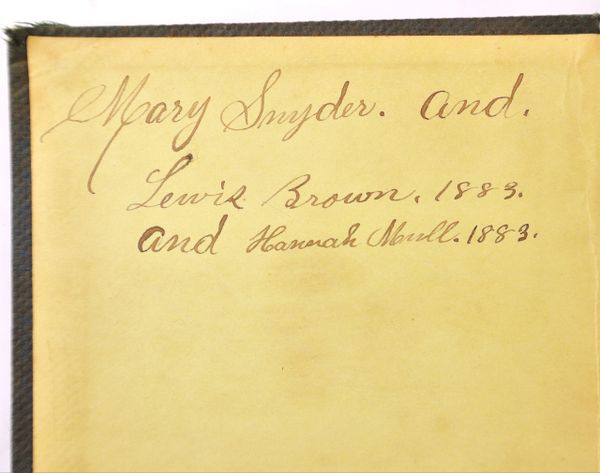 Mary Snyder. and.
Lewis Brown. 1883.
and Hannah Mull. 1883.